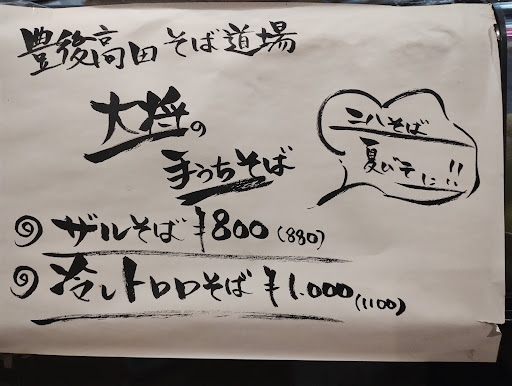 豊後高田そば道場
大将の
手うちそば
二八そば
夏バテに!!
ザルそば ¥800(880)
冷しトロロそば ¥1.000(1100)